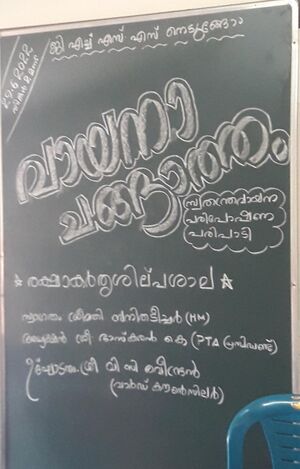 29.6.2022
ജി എച്ച് എസ് എസ് നെടുങ്ങോം
വായനാ
ചങ്ങാത്തം
സ്വതന്ത്രവായന
പരിപോഷണ
പരിപാടി
☆ രക്ഷാകർതൃശില്പശാല ☆
സ്വാഗതം ശ്രീമതി ബിന്ദുടീച്ചർ (HM)
അധ്യക്ഷൻ ശ്രീ ഭാസ്കരൻ കെ (PTA പ്രസിഡണ്ട്)
ഉദ്ഘാടനം ശ്രീ വി സി രവീന്ദ്രൻ
(വാർഡ് കൗൺസിലർ)